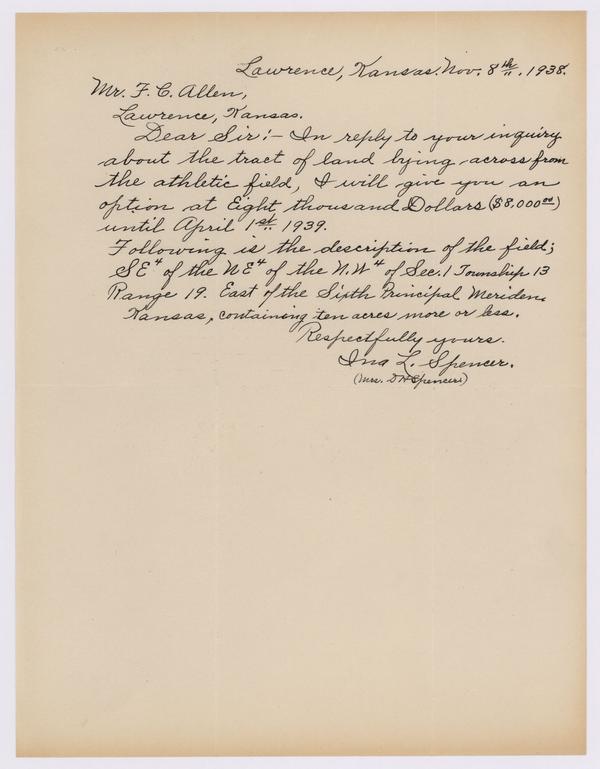 Lawrence, Kansas. Nov. 8th. 1938.
Mr. F. C. Allen,
Lawrence, Kansas.
Dear Sir:- In reply to your inquiry
about the tract of land lying across from
the athletic field, I will give you an
option at Eight thousand Dollars ($8,000.00)
until April 1st 1939.
Following is the description of the field;
SE4 of the NE4 of the N.W4 of Sec. 1 Township 13
Range 19. East of the Sixth Principal Meriden.
Kansas, containing ten acres more or less.
Respectfully yours.
Ina L. Spencer.
(Mrs. D H Spencer)